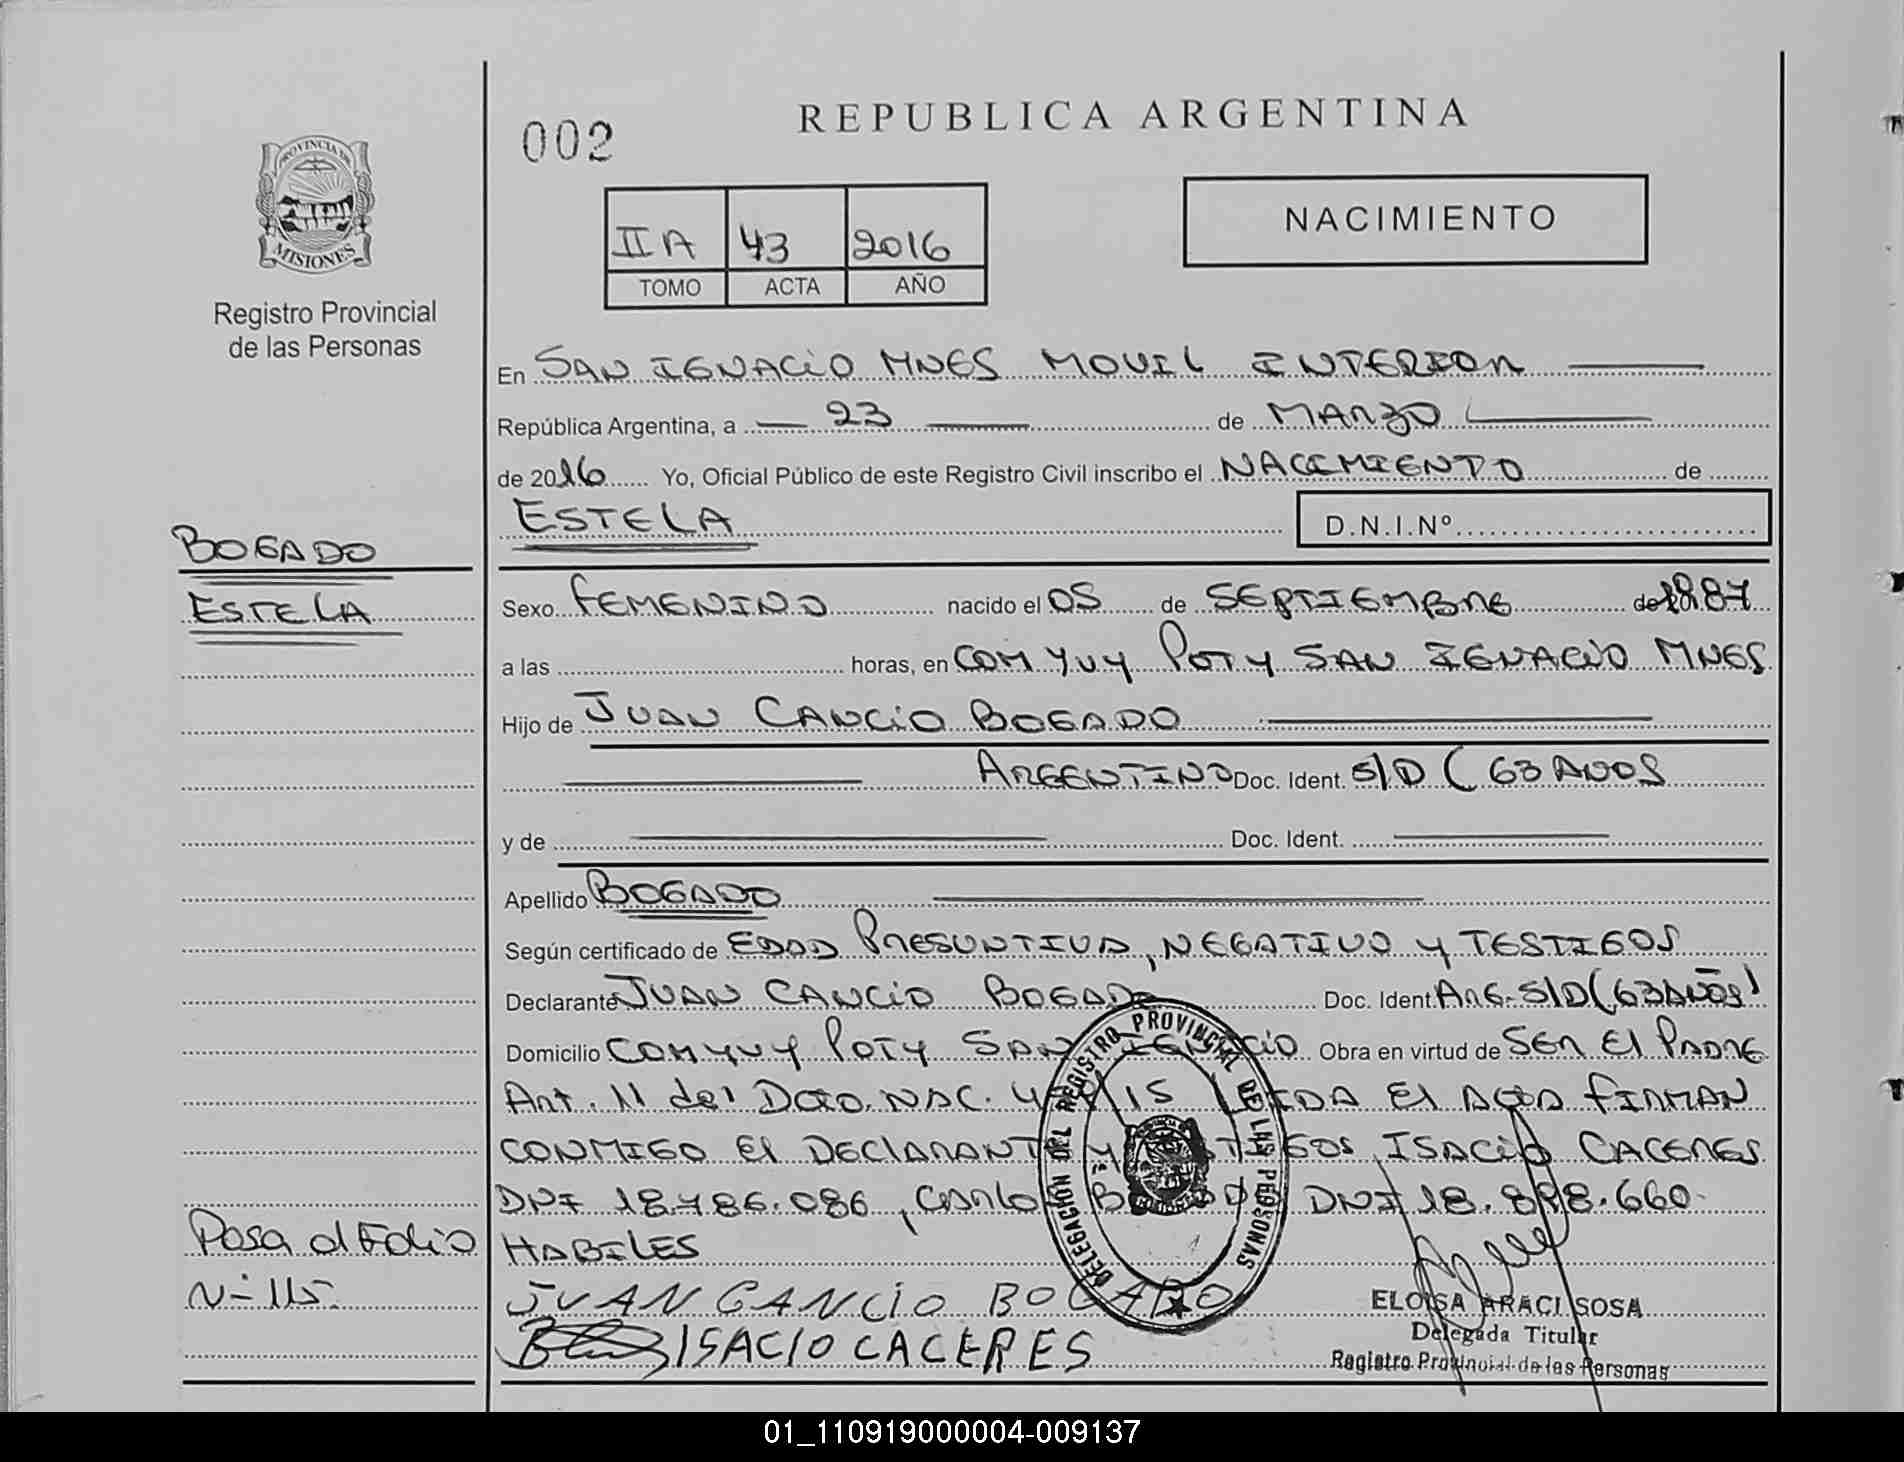 REPUBLICA ARGENTINA
002
NACIMIENTO
PROVINCIA DE
MISIONES
Registro Provincial
de las Personas
IIA 43 2016
TOMO ACTA AÑO
En SAN IGNACIO MNES MOVIL INTERIOR
República Argentina, a 23 de MARZO
de 2016 Yo, Oficial Público de este Registro Civil inscribo el NACIMIENTO de
ESTELA D.N.I.Nº
BOGADO
ESTELA
Sexo FEMENINO nacido el 05 de SEPTIEMBRE de 1987
a las horas, en COM YUY POTY SAN IGNACIO MNES
Hijo de JUAN CANCIO BOGADO
ARGENTINO Doc. Ident. S/D (63 AÑOS
y de Doc. Ident.
Apellido BOGADO
Según certificado de EDAD PRESUNTIVA, NEGATIVO Y TESTIGOS
Declarante JUAN CANCIO BOGADO Doc. Ident. ARG. S/D (63 AÑOS)
Domicilio COM YUY POTY SAN IGNACIO Obra en virtud de SER El PADRE
Art. 11 del Dcto. NAC. LEIDA El ACTA FIRMAN
CONMIGO El DEClARANTE Y TESTIGOS ISACIO CACERES
DNI 18.786.086, CARlOS DNI 18.898.660
HABILES
Pasa al Folio
N- 115.
JUAN CANCIO BOGADO
ISACIO CACERES
DELEGACION DEL REGISTRO PROVINCIAL DE LAS PERSONAS
ELOISA ARACI SOSA
Delegada Titular
Registro Provincial de las Personas
01_110919000004-009137